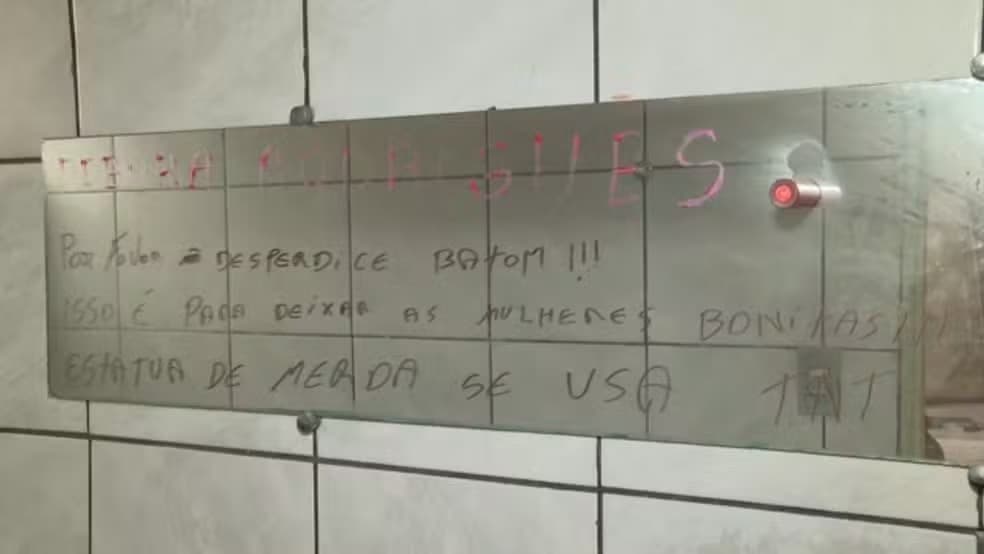 RODRIGUES
POR FAVOR DESPERDICE BATOM!!!
ISSO É PARA DEIXAR AS MULHERES BONITAS!!!
ESTATUA DE MERDA SE USA TNT